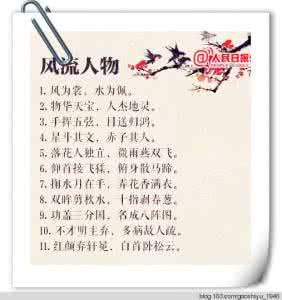 @人民日报
风流人物
1. 风为裳，水为佩。
2. 物华天宝，人杰地灵。
3. 手挥五弦，目送归鸿。
4. 星斗其文，赤子其人。
5. 落花人独立，微雨燕双飞。
6. 仰首接飞猱，俯身散马蹄。
7. 掬水月在手，弄花香满衣。
8. 双眸剪秋水，十指剥春葱。
9. 功盖三分国，名成八阵图。
10. 不才明主弃，多病故人疏。
11. 红颜弃轩冕，白首卧松云。
blog.163.com/gaoshiyu_1946